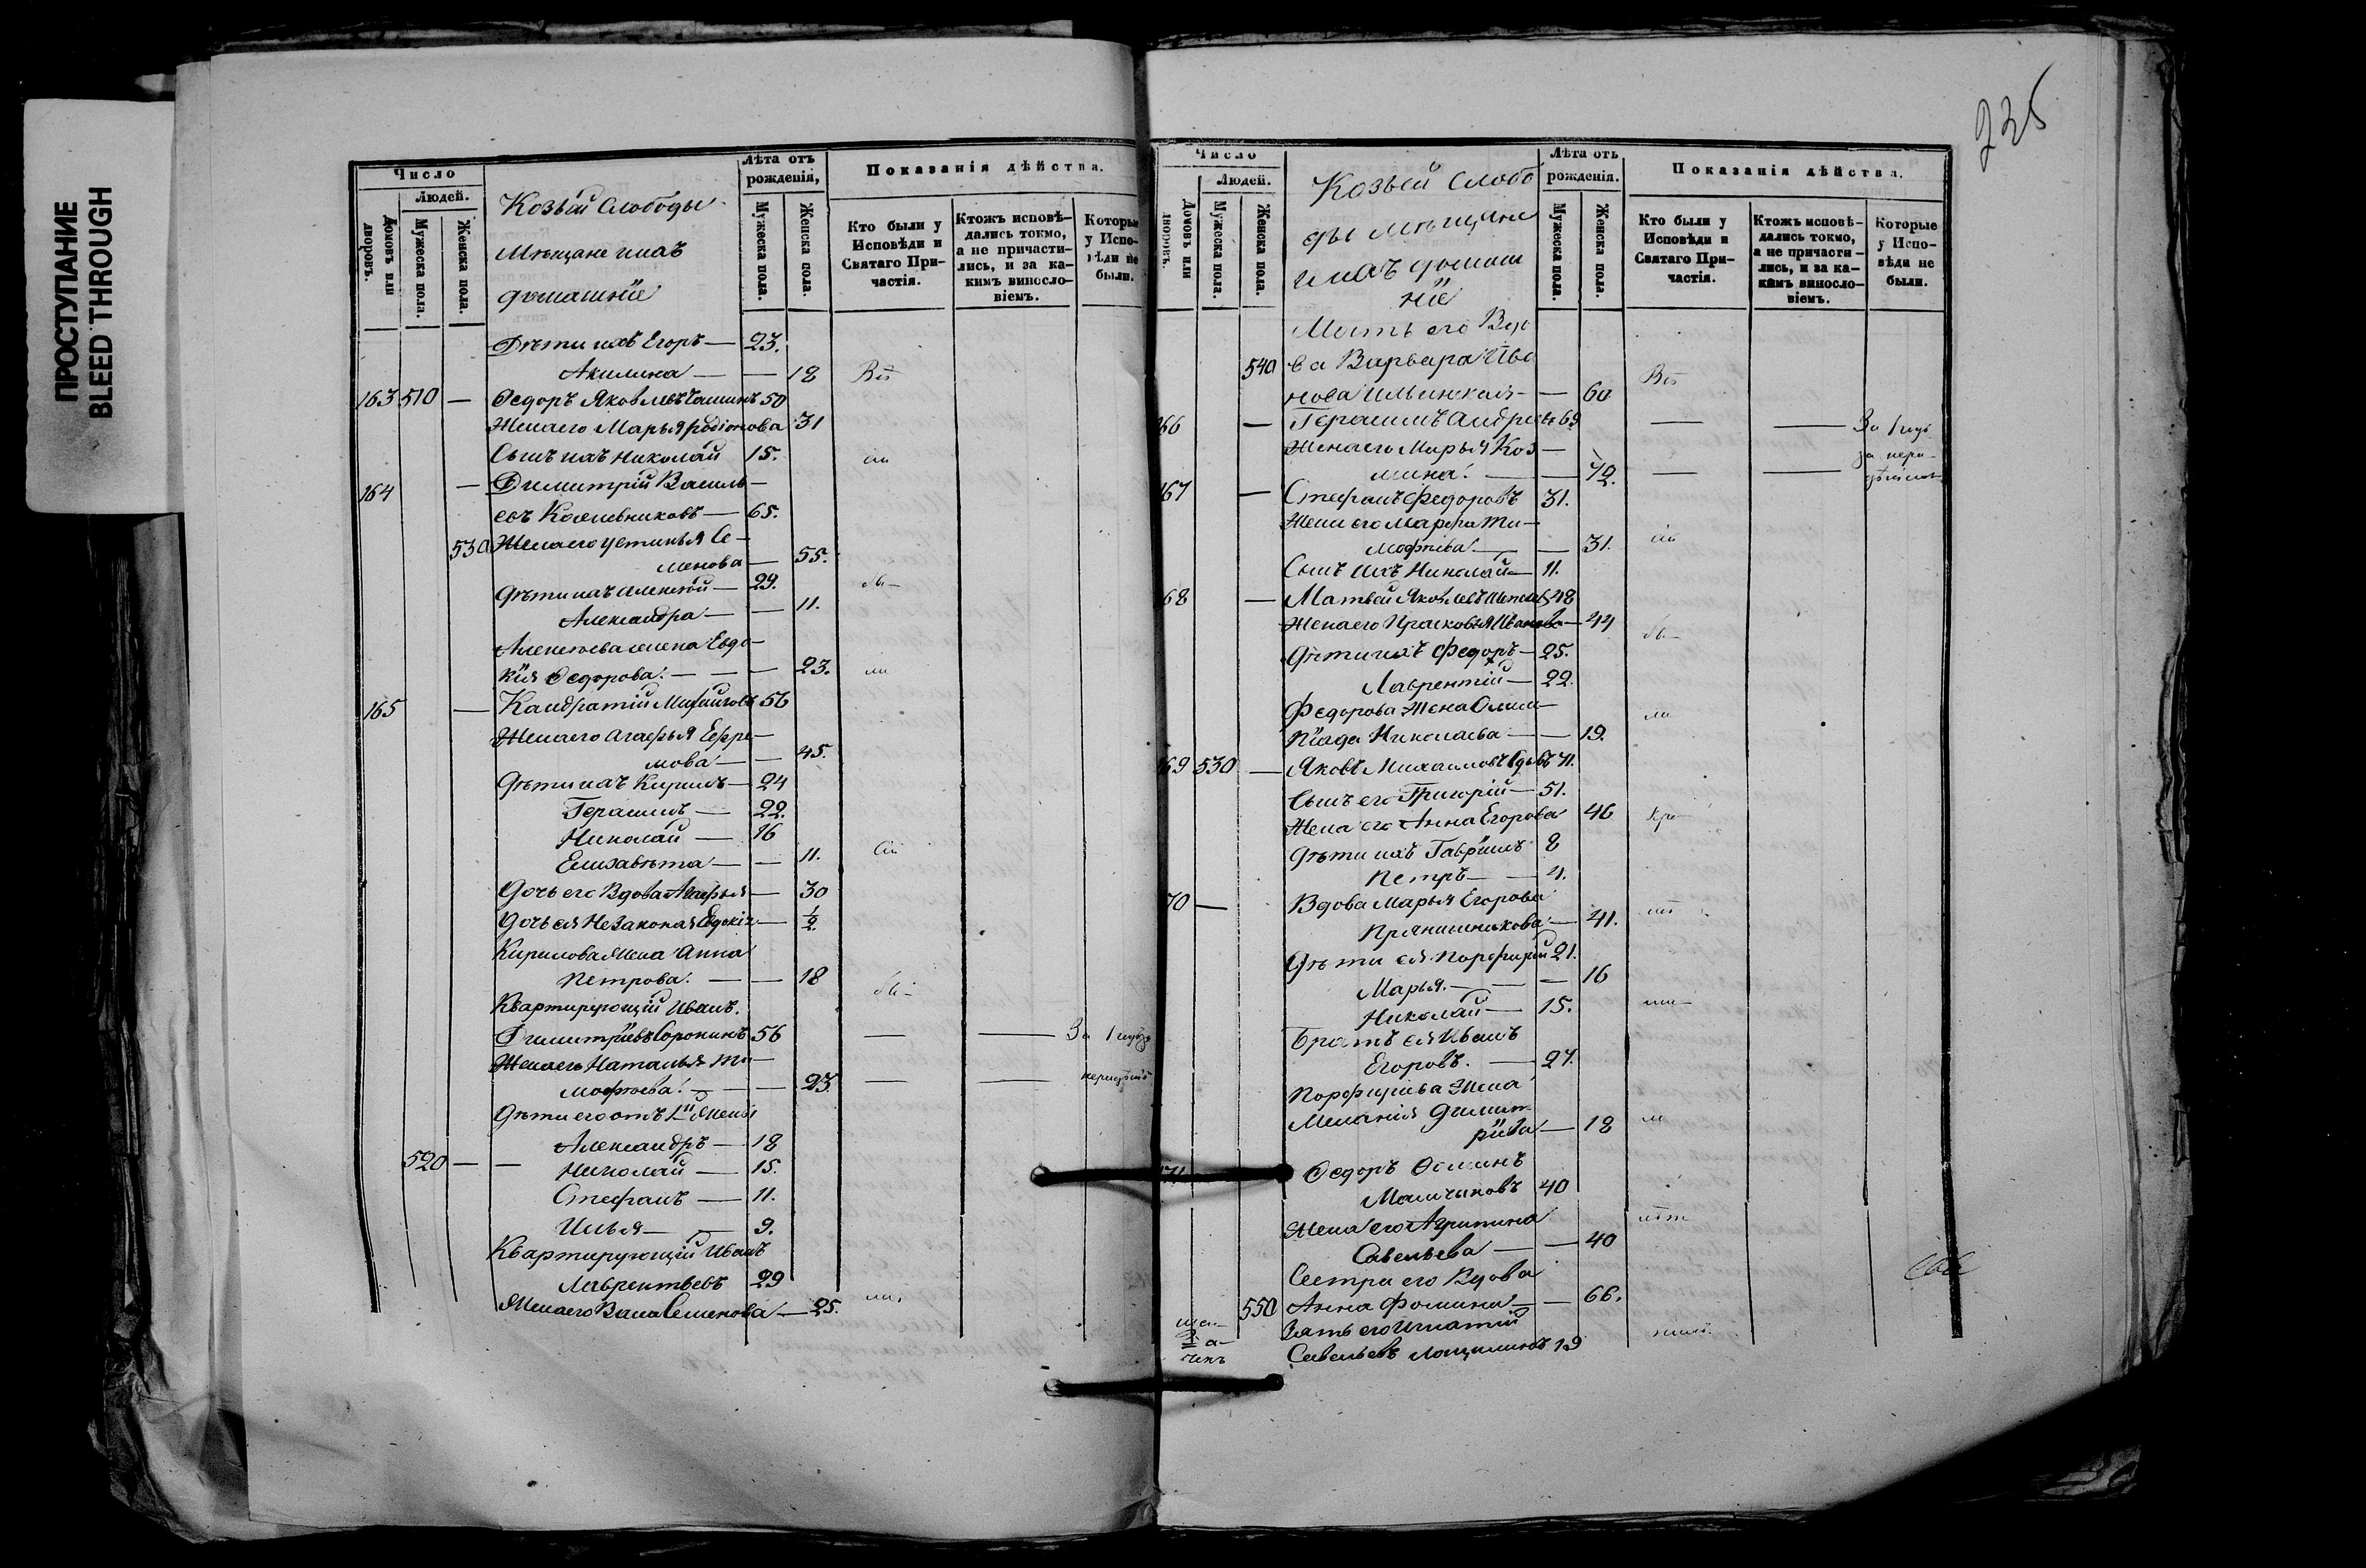 ПРОСТУПАНИЕ
BLEED THROUGH
Число
Людей.
Домовъ или дворовъ.
Мужеска пола.
Женска пола.
Козьей Слободы
Мѣщане и ихъ
домашніе
Лѣта отъ рожденія,
Мужеска пола.
Женска пола.
Показанія дѣйства.
Кто были у Исповѣди и Святаго Причастія.
Ктожъ исповѣдались токмо, а не причастились, и за какимъ винословіемъ.
Которые у Исповѣди не были.
Дѣти ихъ Егоръ — 23.
Акилина — — 18
163 510 — Ѳедоръ Яковлевъ 50
Жена его Марья Родіонова 31
Сынъ ихъ Николай 15.
164 — Димитрій Василь-
евъ Кожевниковъ — 65.
530 Жена его Устинья Се-
менова — 55.
Дѣти ихъ Алексѣй — 29.
Александра — — 11.
Алексѣева жена Евдо-
кія Ѳедорова. — — 23.
165 — Кандратій 56
Жена его Агафья Ефре-
мова — — 45.
Дѣти ихъ Кирилъ — 24
Герасимъ — 22.
Николай — 16
Елизавѣта — — 11.
Дочь его Вдова Агафья — 30
Дочь ея Незаконая Евдокія — 1/2
Кирилова Жена Анна
Петрова. — — 18
Квартирующій Иванъ
Димитріевъ Сорокинъ 56 — — За 1 годъ
Жена его Наталья Ти-
мофѣева. — — 23. — —
Дѣти его отъ 1й Жены
Александръ — 18
520 — — Николай — 15.
Стефанъ — 11.
Илья — 9.
Квартирующій Иванъ
Лаврентьевъ 29
Жена его Семенова — 25.
235
Число
Людей.
Домовъ или дворовъ.
Мужеска пола.
Женска пола.
Козьей Слобо
ды мѣщане
и ихъ домаш
ніе
Лѣта отъ рожденія.
Мужеска пола.
Женска пола.
Показанія дѣйства.
Кто были у Исповѣди и Святаго Причастія.
Ктожъ исповѣдались токмо, а не причастились, и за какимъ винословіемъ.
Которые у Исповѣди не были.
Мать его Вдо
540 ва Варвара Ива
нова Ильинская — — 60
66 — Герасимъ Андреевъ 69 — — За 1 годъ
Жена его Марья Коз —
мина. — — 72. — —
67 — Стефанъ Федоровъ 31.
Жена его Марфа Ти-
мофѣева — — 31.
Сынъ ихъ Николай — 11.
68 — Матвей Яковлевъ 48
Жена его Прасковья Иванова — 44
Дѣти ихъ Федоръ — 25.
Лаврентій — 22.
Федорова Жена Олим-
піада Николаева — — 19.
69 530 — Яковъ Михаиловъ Вдовъ 71.
Сынъ его Григорій — 51.
Жена его Анна Егорова 46
Дѣти ихъ Гавріилъ 8
Петръ — — 4.
70 — Вдова Марья Егорова
Прянишникова — 41.
Дѣти ея Порфирій 21.
Марья. — — — 16
Николай — 15.
Братъ ея Иванъ
Егоровъ. — 27.
Порфирьева Жена
Меланія Димит-
ріева — 18
71 Ѳедоръ Ѳоминъ
40
Жена его Агрипина
Савельева — — 40
Сестра его Вдова
550 Анна Фомина — — 66.
Зять его Игнатій
Савельевъ 19